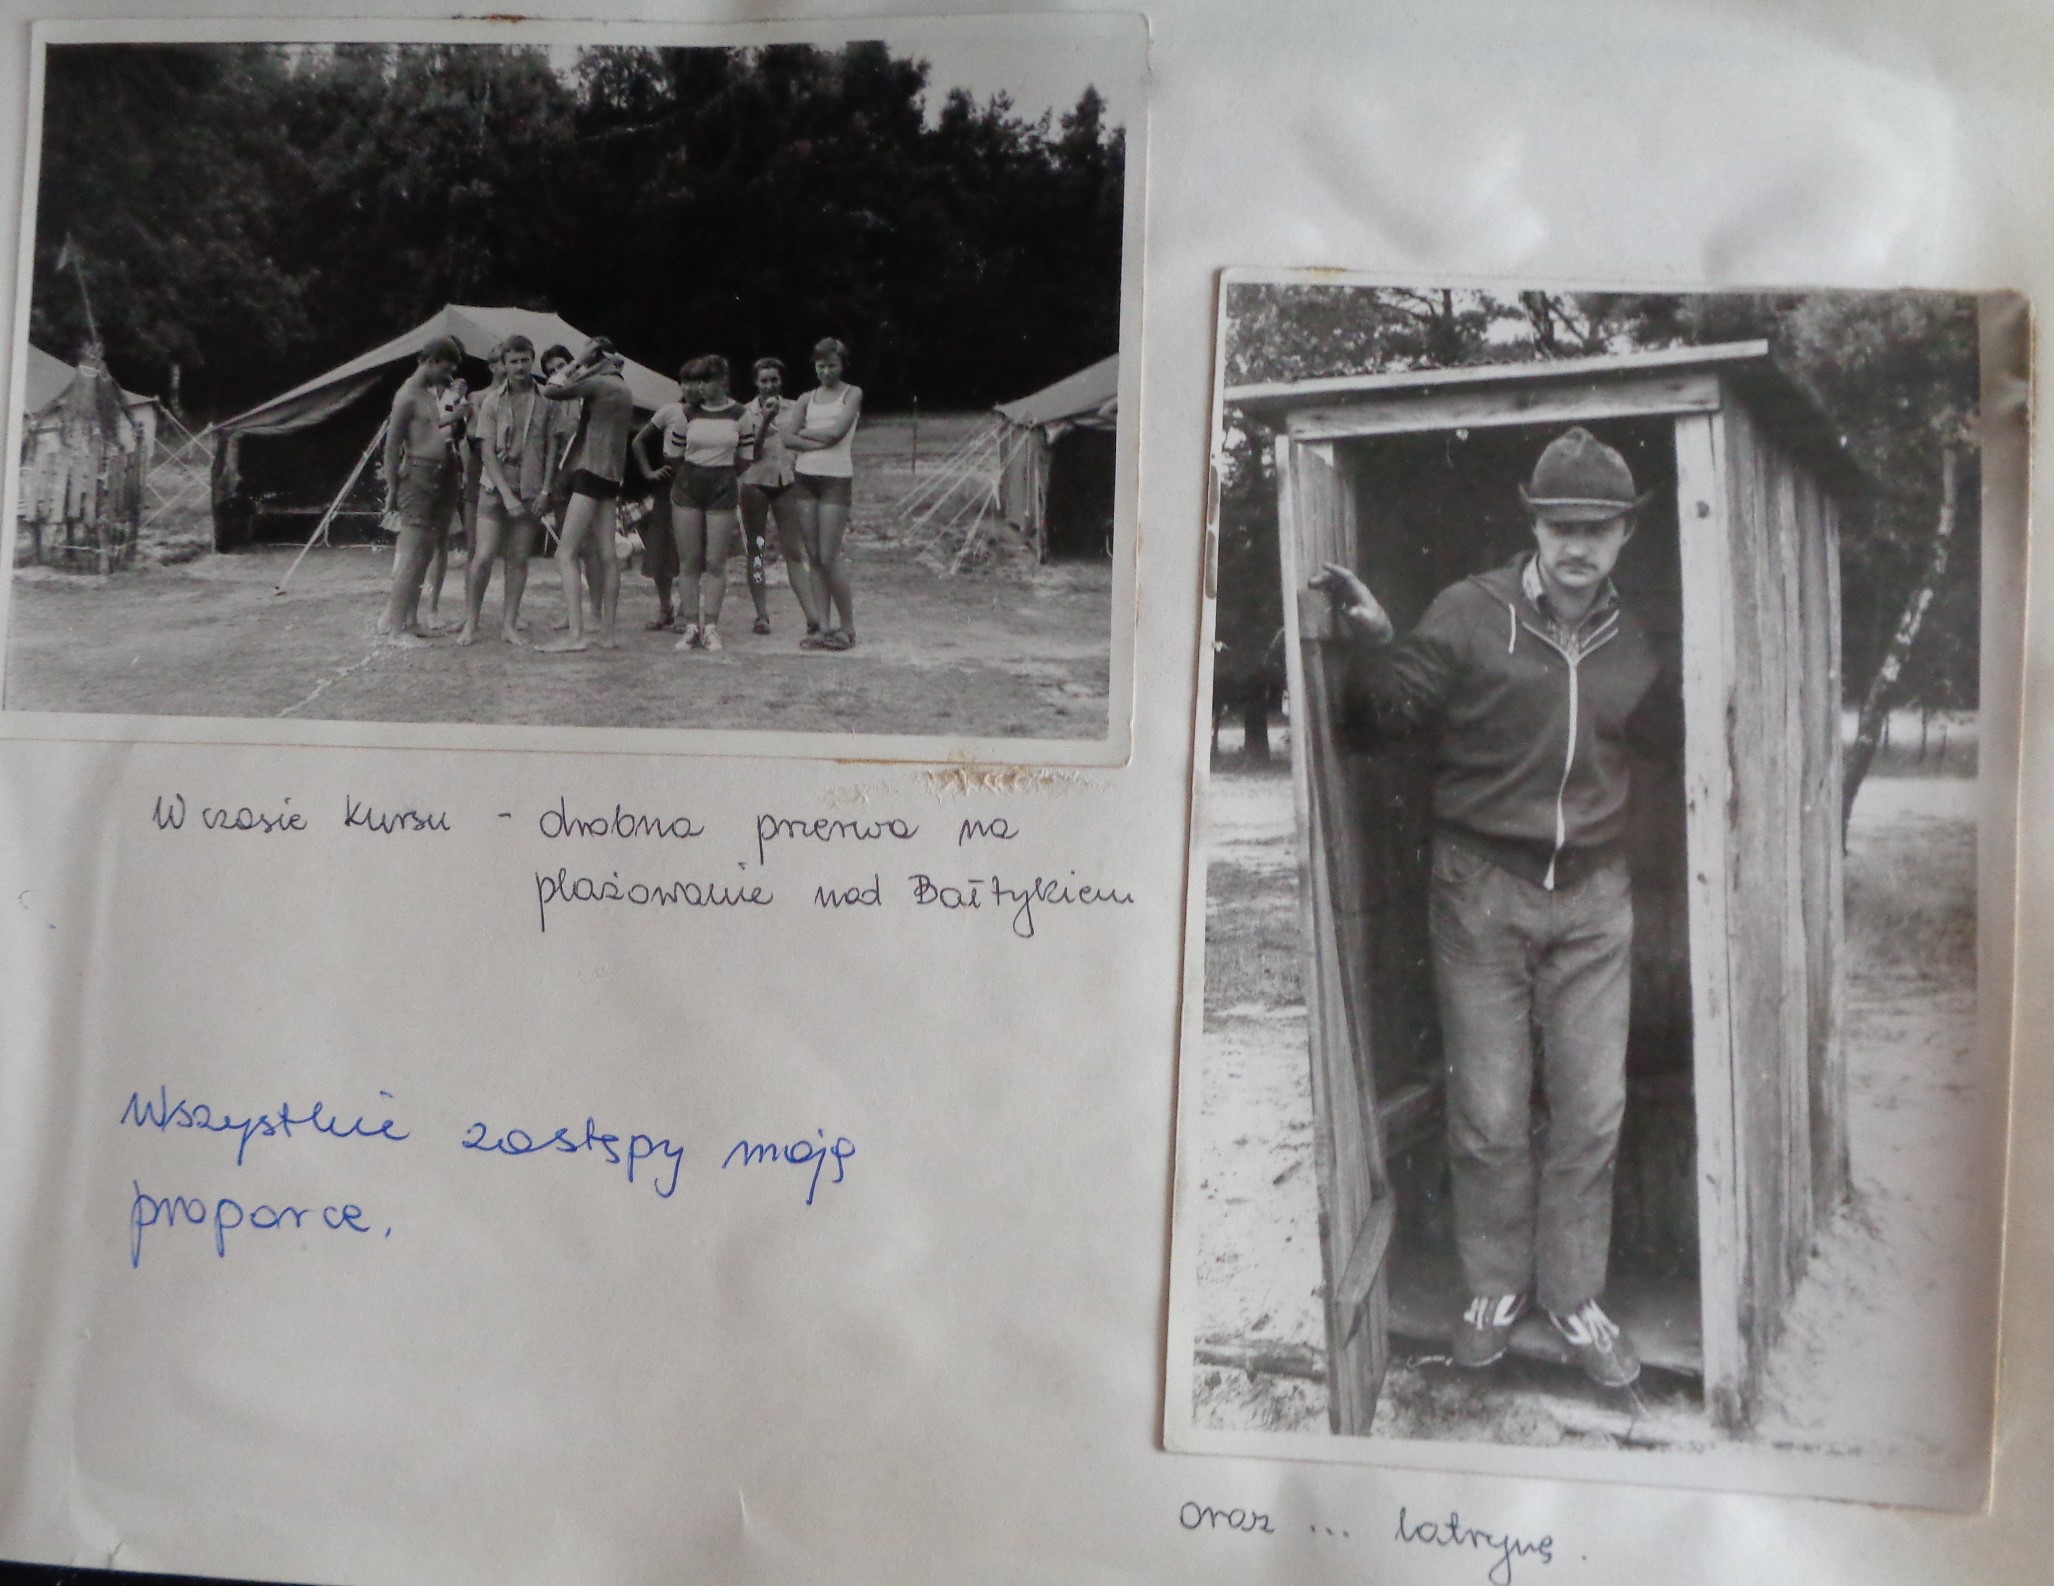 W czasie kursu - drobna przerwa na
plażowanie nad Bałtykiem
Wszystkie zastępy mają
proporce.
oraz ... latrynę.